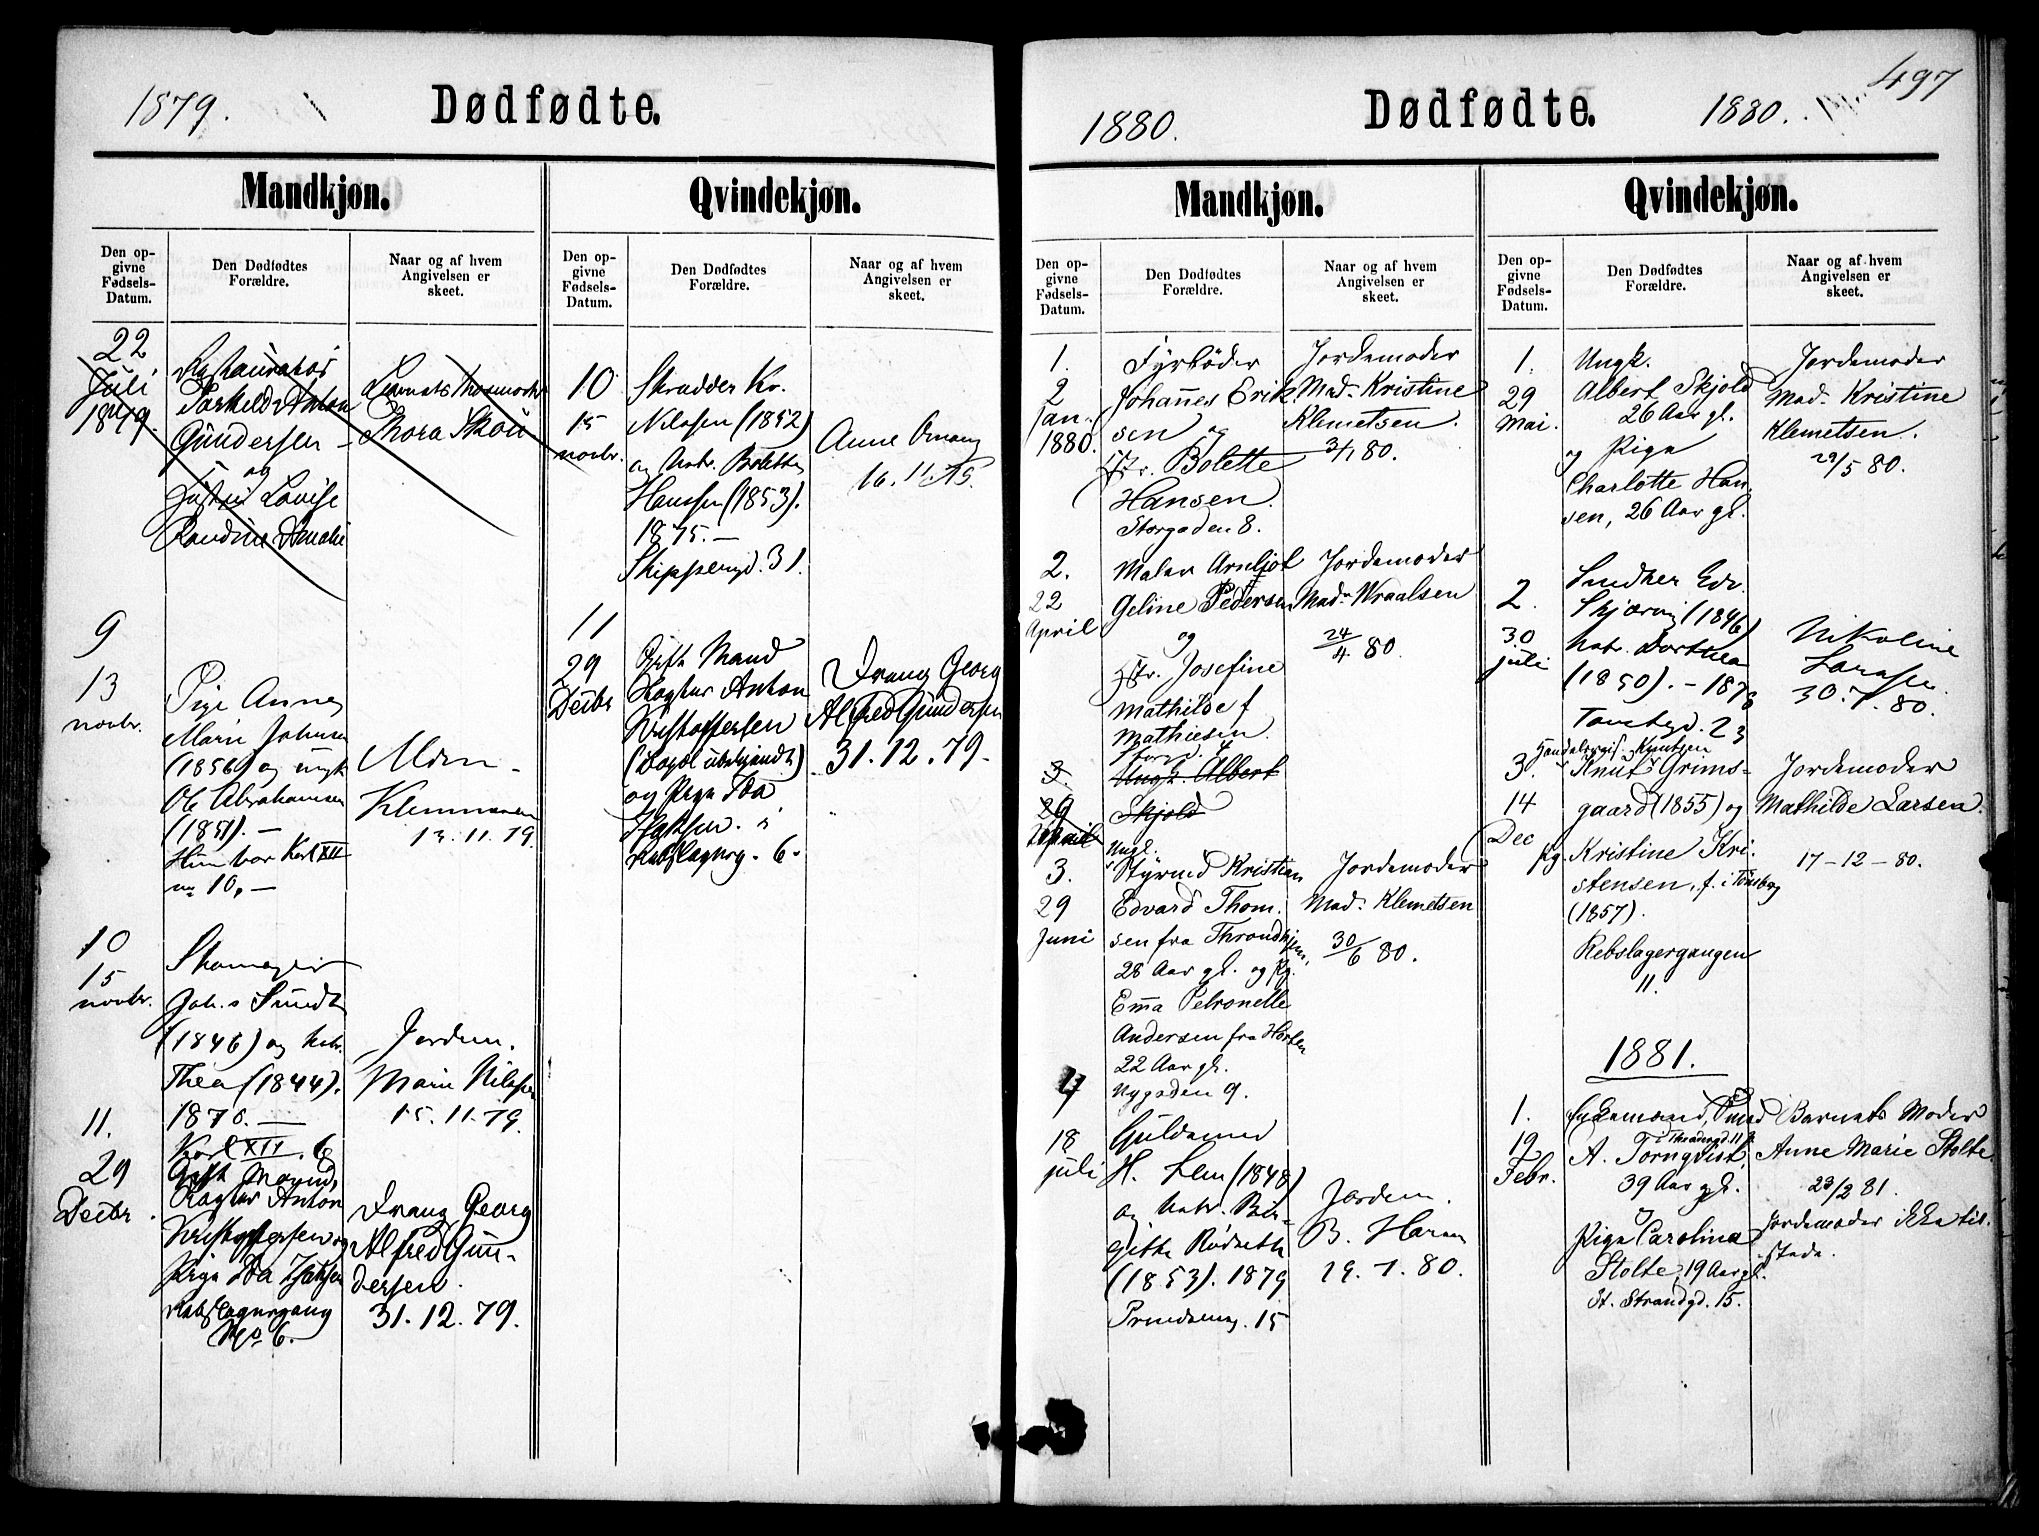 1879.
Dødfødte.
Mandkjøn.
Qvindekjøn.
Den op-
givne
Fødsels-
Datum.
Den Dødfødtes
Forældre.
Naar og af hvem
Angivelsen er
skeet.
Den op-
givne
Fødsels-
Datum.
Den Dødfødtes
Forældre.
Naar og af hvem
Angivelsen er
skeet.
22
Juli
1879.
Anton
Gundersen
og
Lovise
Amalie
Thora
9
13
novbr.
Pige Anne
Marie Johnsen
(1856) og ungk
Ole Abrahamsen
(1851). —
Karl XII
no 10, —
13.11.79.
10
15
novbr.
Skomager
Joh. Sundt
(1846) og hstr.
Thea (1844).
1870. —
Karl XII. 6
Jordem.
Marie Nilssen
15.11.79.
11.
29
Decbr.
Gift Mand,
Anton
Kristoffersen og
Pige Ida
Rebslagergang
No 6.
Dreng Georg
Alfred Gun-
dersen.
31.12.79.
10
15
novbr.
Skrædder Kr.
Nilssen (1852)
og hstr. Bolette
Hanssen (1853).
1875. —
Skippergd. 31.
Anne
16.11.75.
11
29
Decbr
Gift Mand
Anton
Kristoffersen
(Bopæl ubekjendt)
og Pige Ida
Rebslagerg. 6.
Dreng Georg
Alfred Gundersen
31.12.79.
497
1880.
Dødfødte.
1880.
Mandkjøn.
Qvindekjøn.
Den op-
givne
Fødsels-
Datum.
Den Dødfødtes
Forældre.
Naar og af hvem
Angivelsen er
skeet.
Den op-
givne
Fødsels-
Datum.
Den Dødfødtes
Forældre.
Naar og af hvem
Angivelsen er
skeet.
1.
2
Jan.
1880.
Fyrbøder
Johannes Erik-
sen og
Bolette
Hansen.
Storgaden 8.
Jordemoder
Mad. Kristine
Klemetsen.
3/1 80.
2.
22
April
Maler Arnljot
Geline Pedersen
og
Hstr. Josefine
Mathilde f
Mathiesen.
Storgd. 4
Jordemoder
Mad. Wraalsen
24/4 80.
3.
29
April
Ungk. Albert
Skjold
3.
29
Juni
Ungk.
Styrmd Kristian
Edvard Thom-
sen fra Throndhjem,
28 Aar gl. og Pg.
Emma Petronelle
Andersen fra Horten
22 Aar gl.
Nygaden 9.
Jordemoder
Mad. Klemetsen
30/6 80.
4
18
juli
Guldsmed
H. Lem (1848)
og hstr. Bir-
gitte Rødseth
(1853). 1879
Prindseng. 15
Jordem.
B. Haram
19.7.80.
1.
29
Mai.
Ungk.
Albert Skjold
26 Aar gl.
og Pige
Charlotte Han-
sen, 26 Aar gl.
Jordemoder
Mad. Kristine
Klemetsen.
29/5 80.
2.
30
juli
Snedker Edv.
(1846)
hstr. Dorthea
(1850). — 1876
Tønsbgd. 23
Nikoline
Larsen.
30.7.80.
3.
14
Dec
Knut Grims-
gaard (1855) og
Pg. Kristine Kri-
stensen, f. i Tønsberg
(1857).
Rebslagergangen
11.
Jordemoder
Mathilde Larsen.
17-12-80.
1881.
1.
19
Febr.
Enkemand, Smed
A. Tornqvist,
39 Aar gl.
og
Pige Carolina
Stolte, 19 Aar gl.
St. Strandgd. 15.
Barnets Moder
Anne Marie Stolte.
23/2 81.
Jordemoder ikke til-
stede.